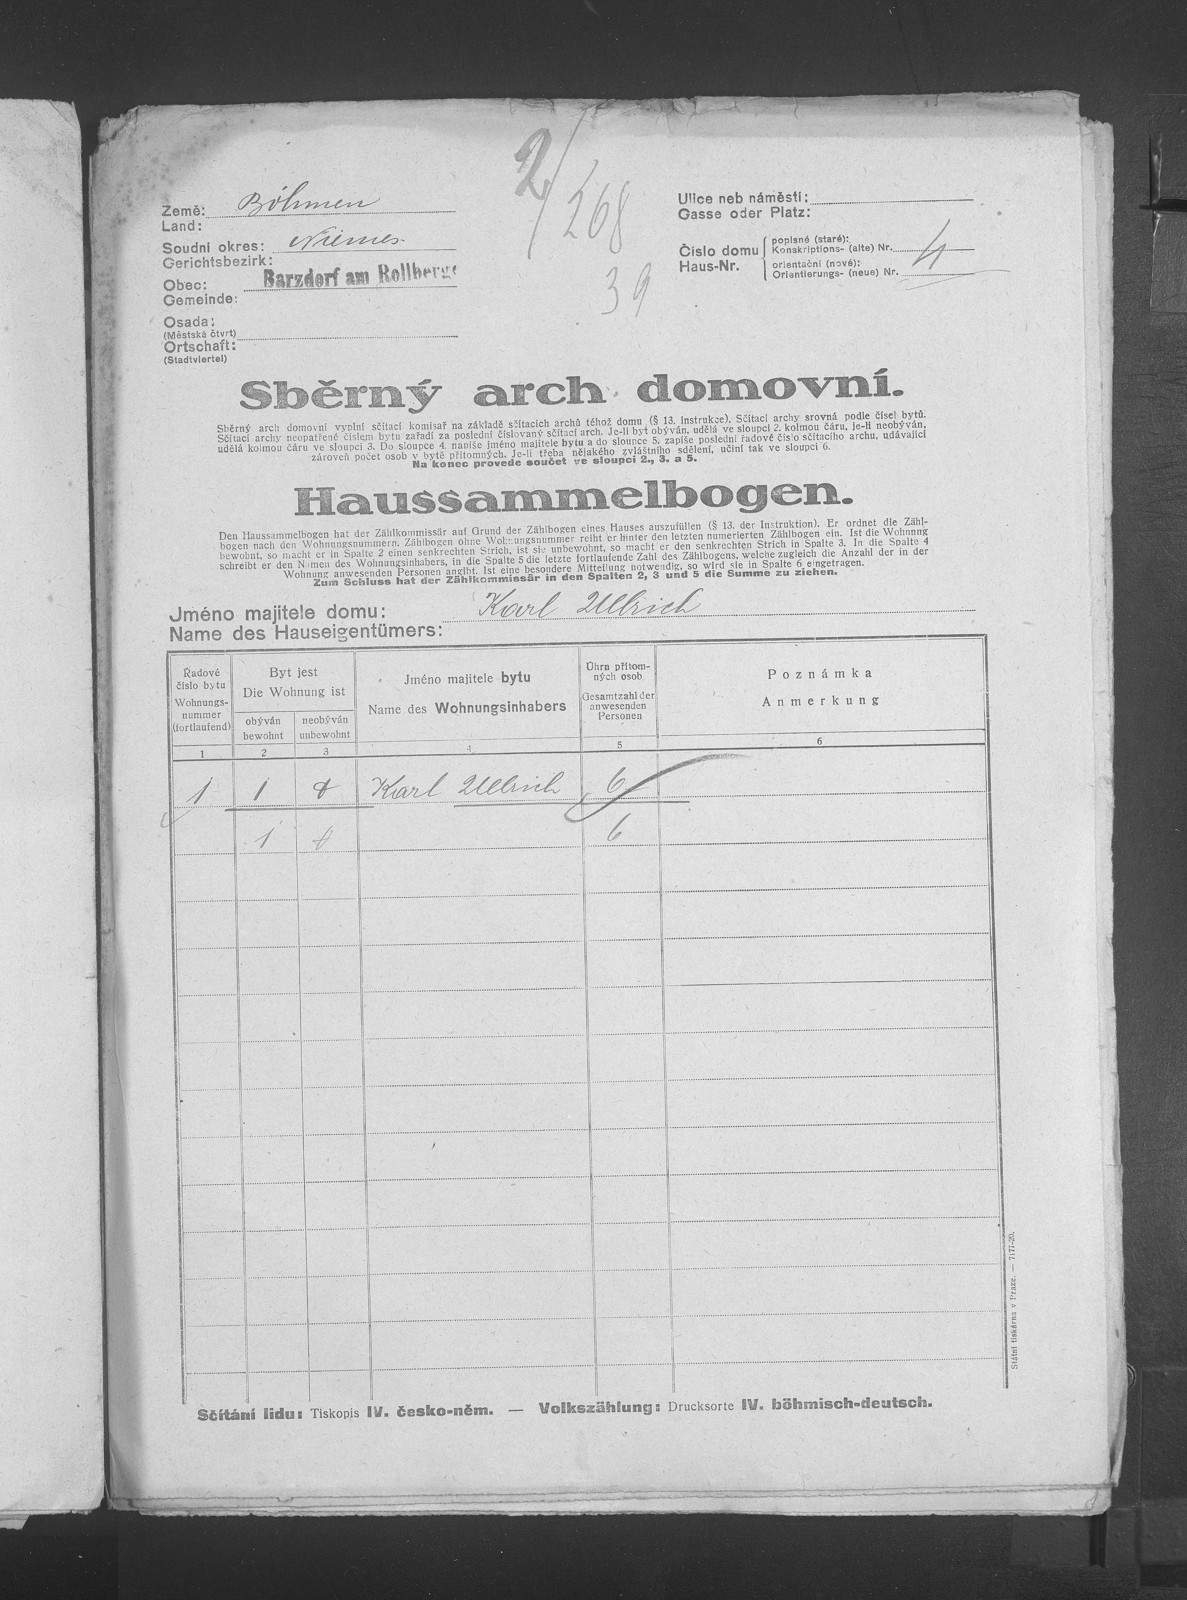 2/268
39
Země: Böhmen
Land:
Soudní okres: Niemes
Gerichtsbezirk:
Obec: Barzdorf am Rollberge
Gemeinde:
Osada:
(Městská čtvrt)
Ortschaft:
(Stadtviertel)
Ulice neb náměstí:
Gasse oder Platz:
Číslo domu
Haus-Nr.
popisné (staré):
Konskriptions- (alte) Nr. 4
orientační (nové):
Orientierungs- (neue) Nr.
Sběrný arch domovní.
Sběrný arch domovní vyplní sčítací komisař na základě sčítacích archů téhož domu (§ 13. instrukce). Sčítací archy srovná podle čísel bytů.
Sčítací archy neopatřené číslem bytu zařadí za poslední číslovaný sčítací arch. Je-li byt obýván, udělá ve sloupci 2. kolmou čáru, je-li neobýván,
udělá kolmou čáru ve sloupci 3. Do sloupce 4. napíše jméno majitele bytu a do sloupce 5. zapíše poslední řadové číslo sčítacího archu, udávající
zároveň počet osob v bytě přítomných. Je-li třeba nějakého zvláštního sdělení, učiní tak ve sloupci 6.
Na konec provede součet ve sloupci 2., 3. a 5.
Haussammelbogen.
Den Haussammelbogen hat der Zählkommissär auf Grund der Zählbogen eines Hauses auszufüllen (§ 13. der Instruktion). Er ordnet die Zähl-
bogen nach den Wohnungsnummern. Zählbogen ohne Wohnungsnummer reiht er hinter den letzten numerierten Zählbogen ein. Ist die Wohnung
bewohnt, so macht er in Spalte 2 einen senkrechten Strich, ist sie unbewohnt, so macht er den senkrechten Strich in Spalte 3. In die Spalte 4
schreibt er den Namen des Wohnungsinhabers, in die Spalte 5 die letzte fortlaufende Zahl des Zählbogens, welche zugleich die Anzahl der in der
Wohnung anwesenden Personen angibt. Ist eine besondere Mitteilung notwendig, so wird sie in Spalte 6 eingetragen.
Zum Schluss hat der Zählkommissär in den Spalten 2, 3 und 5 die Summe zu ziehen.
Jméno majitele domu: Karl Ullrich
Name des Hauseigentümers:
Řadové
číslo bytu
Wohnungs-
nummer
(fortlaufend)
Byt jest
Die Wohnung ist
obýván
bewohnt
neobýván
unbewohnt
Jméno majitele bytu
Name des Wohnungsinhabers
Úhrn přítom-
ných osob
Gesamtzahl der
anwesenden
Personen
Poznámka
Anmerkung
1 2 3 4 5 6
1 1 Karl Ullrich 6
1 6
Státní tiskárna v Praze. — 7177-20.
Sčítání lidu: Tiskopis IV. česko-něm. — Volkszählung: Drucksorte IV. böhmisch-deutsch.